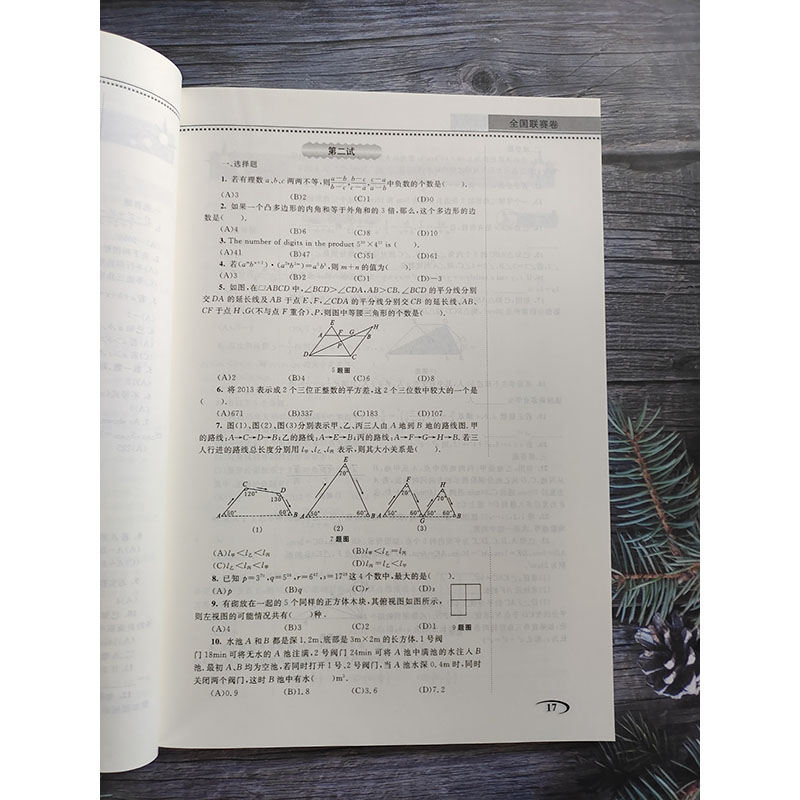 全国联赛卷
第二试
一、选择题
1. 若有理数a、b、c两两不等,则(a−b)/(b−c),(b−c)/(c−a),(c−a)/(a−b)中负数的个数是( ).
(A)3 (B)2 (C)1 (D)0
2. 如果一个凸多边形的内角和等于外角和的3倍,那么,这个多边形的边
数是( ).
(A)4 (B)6 (C)8 (D)10
3. The number of digits in the product
is ( ).
(A)41 (B)47 (C)51 (D)61
4. 若
,则m+n的值为( ).
(A)3 (B)2 (C)1 (D)−3
5. 如图,在□ABCD中,∠BCD>∠CDA,AB>CB,∠BCD的平分线分别
交DA的延长线及AB于点E、F,∠CDA的平分线分别交CB的延长线、AB、
CF于点H、G(不与点F重合)、P,则图中等腰三角形的个数是( ).
E H
A F G B
P
D C
5题图
(A)2 (B)4 (C)6 (D)8
6. 将2013表示成2个三位正整数的平方差,这2个三位数中较大的一个是
( ).
(A)671 (B)337 (C)183 (D)107
7. 图(1)、图(2)、图(3)分别表示甲、乙、丙三人由A地到B地的路线图.甲
的路线:A→C→D→B;乙的路线:A→E→B;丙的路线:A→F→G→H→B.若三
人行进的路线总长度分别用l甲、l乙、l丙表示,则其大小关系是( ).
C 120° D 130° A 50° 60° B
E 70° A 50° 60° B
F 70° H 70° A 50° 60° G 50° 60° B
(1) (2) (3)
7题图
(A)l甲<l乙<l丙 (B)l甲<l乙=l丙
(C)l乙<l丙<l甲 (D)l丙=l乙<l甲
8. 已知
这4个数中,最大的是( ).
(A)p (B)q (C)r (D)s
9. 有砌放在一起的5个同样的正方体木块,其俯视图如图所示,
则左视图的可能情况共有( )种.
(A)4 (B)3 (C)2 (D)1
9题图
10. 水池A和B都是深1.2m,底部是3m×2m的长方体.1号阀
门18min可将无水的A池注满,2号阀门24min可将A池中满池的水注入B
池.最初A、B均为空池,若同时打开1号、2号阀门,当A池水深0.4m时,同时
关闭两个阀门,这时B池中有水( )m³.
(A)0.9 (B)1.8 (C)3.6 (D)7.2
17